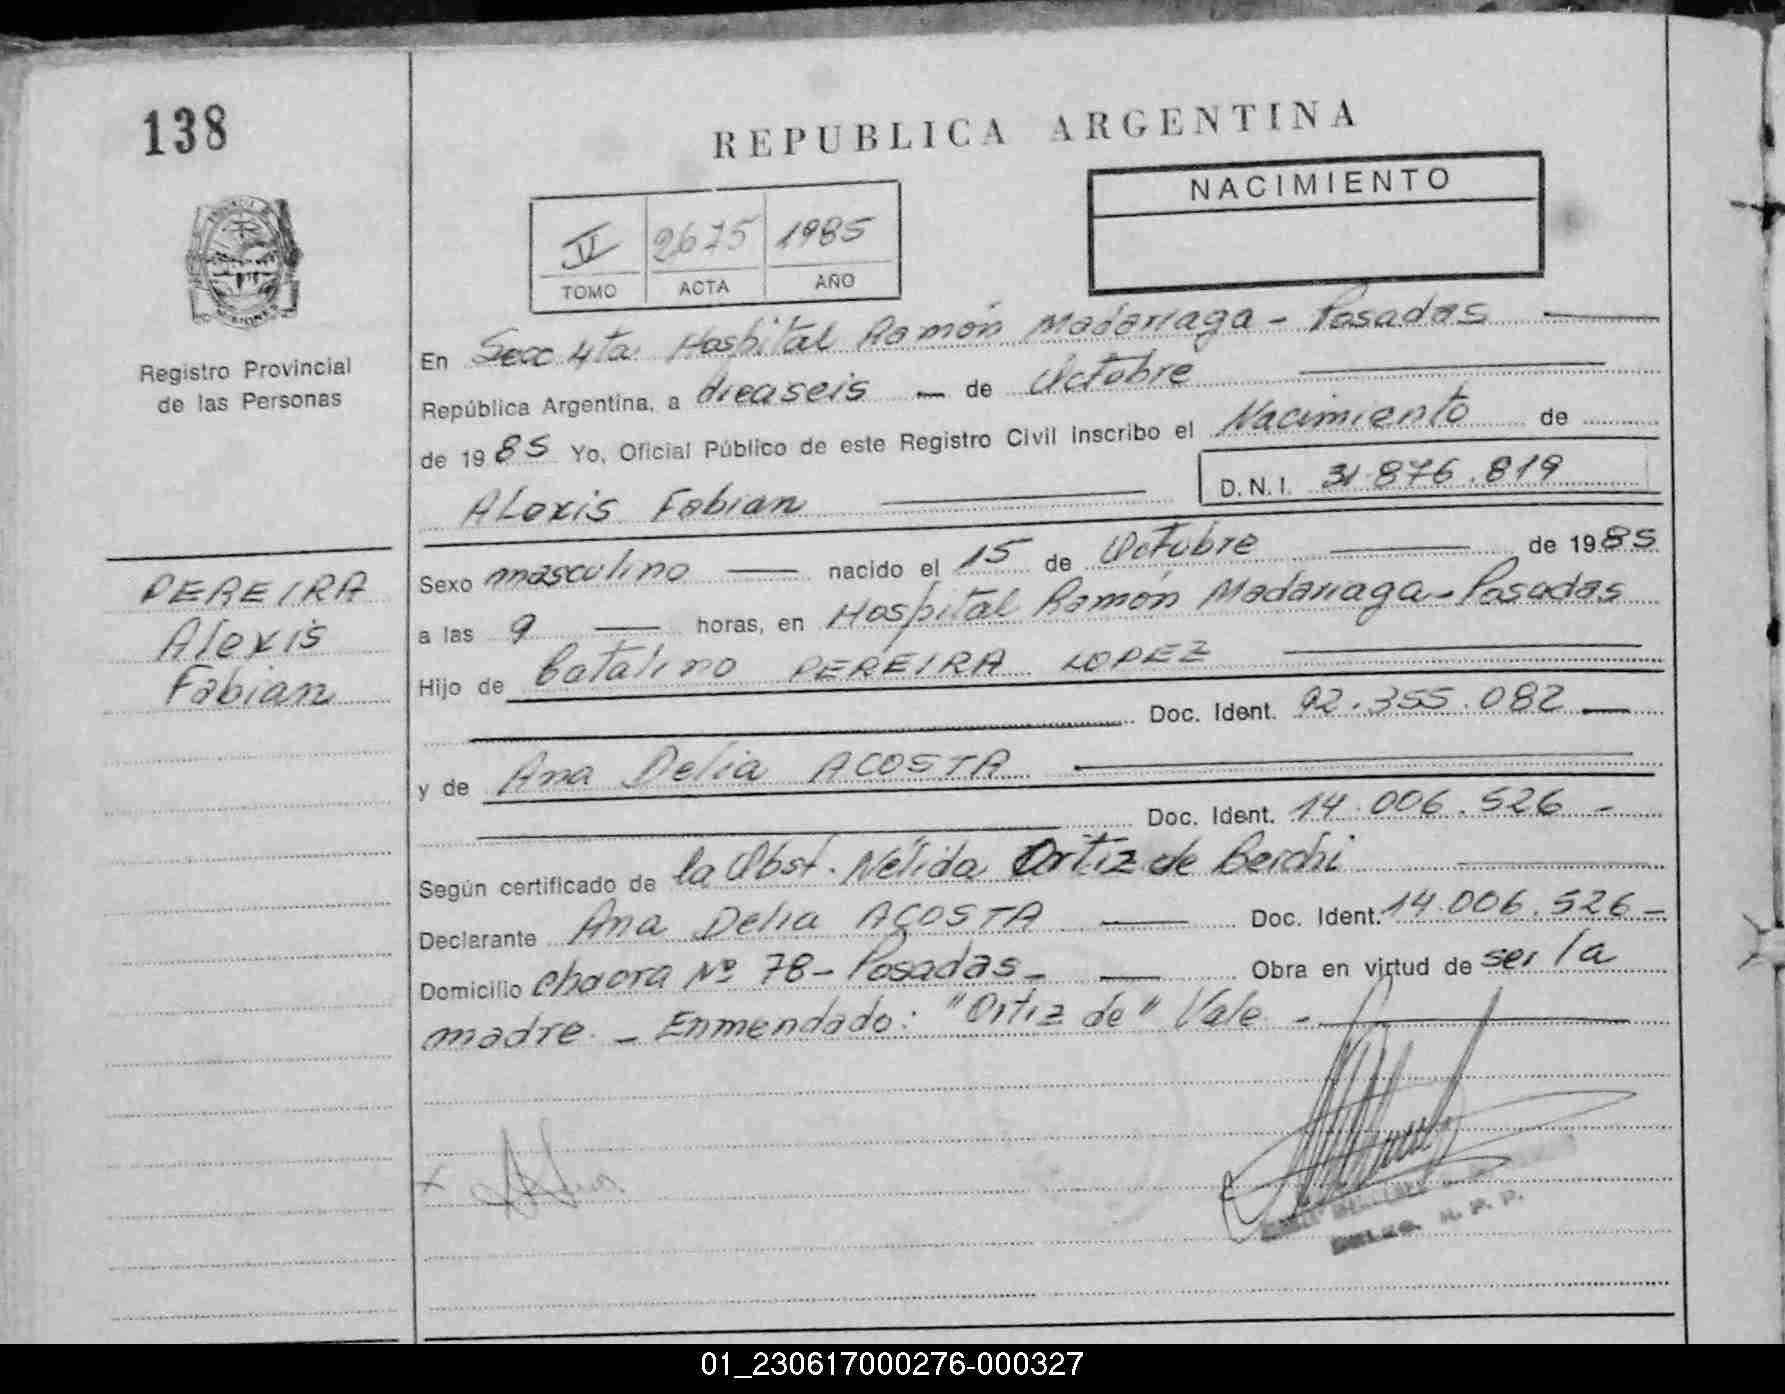 138
REPUBLICA ARGENTINA
NACIMIENTO
II 2675 1985
TOMO ACTA AÑO
Registro Provincial
de las Personas
En Secc 4ta Hospital Ramón Madariaga - Posadas
República Argentina, a dieciseis de Octubre
de 1985 Yo, Oficial Público de este Registro Civil inscribo el Nacimiento de
Alexis Fabian D.N.I. 31.876.819
PEREIRA
Alexis
Fabian
Sexo masculino nacido el 15 de Octubre de 1985
a las 9 horas, en Hospital Ramón Madariaga - Posadas
Hijo de Catalino PEREIRA LOPEZ
Doc. Ident. 92.355.082
y de Ana Delia ACOSTA
Doc. Ident. 14.006.526 -
Según certificado de la Obst. Nélida Ortiz de Berchi
Declarante Ana Delia ACOSTA Doc. Ident. 14.006.526 -
Domicilio chacra Nº 78 - Posadas - Obra en virtud de ser la
madre. - Enmendado: "Ortiz de" Vale -
x
R. P. P.
01_230617000276-000327